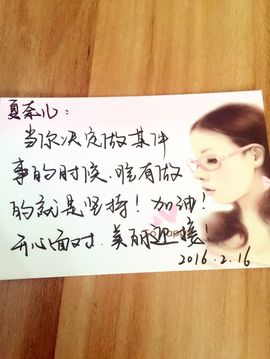 夏奈儿：
当你决定做某件
事的时候，唯有做
的就是坚持！加油！
开心面对，美丽迎接！
2016.2.16